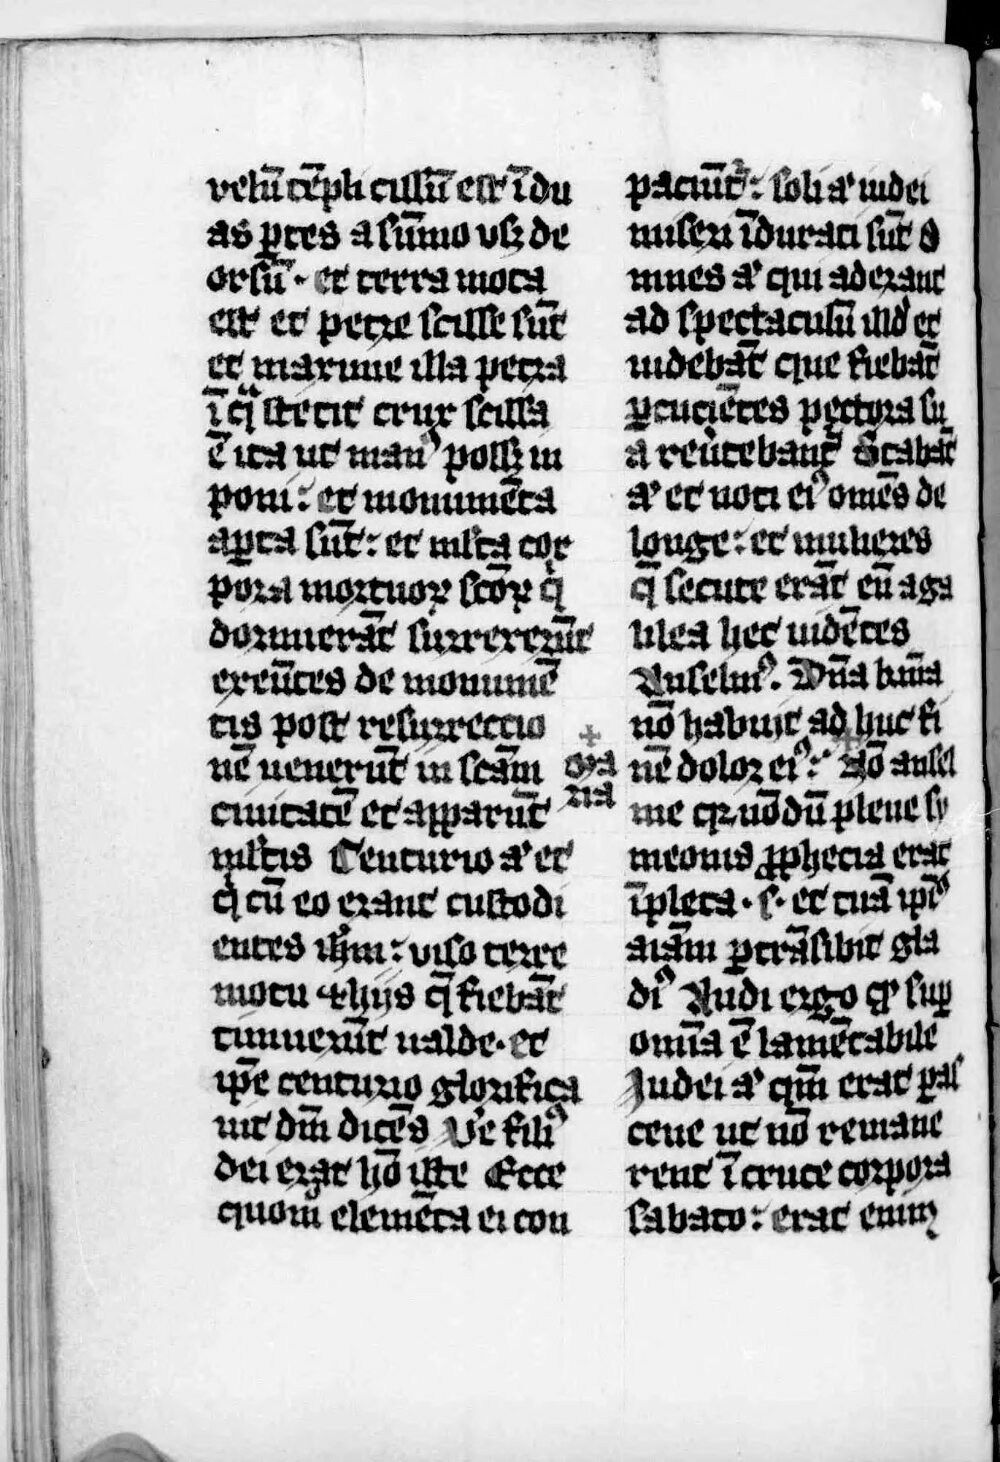 velū tēpli cissū est ī du
as ꝑtes a sūmo usꝫ de
orsū · et terra mota
est et petre scisse sūt
et maxime illa petra
ī qͣ stetit crux scissa
ē ita ut manꝰ possꝫ in
poni : et monumēta
aꝑta sūt : et ml̄ta cor
pora mortuoꝝ sc̄oꝝ q̄
dormierāt surrexerūt
exeūtes de monumē
tis post resurrectio
nē uenerūt in sc̄am
ciuitatē et apparūt
ml̄tis Centurio aͧ et
q̄ cū eo erant custodi
entes ihm̄ : viso terre
motu ⁊ hijs q̄ fiebāt
timuerūt ualde · et
ip̄e centurio glorifica
uit dm̄ dicēs Ve͛ filiꝰ
dei erat hō iste Ecce
quom͛ elemēta ei con
ora
ria
paciūt͛ : soli aͧ iudei
miseri īdurati sūt O
mnes aͧ qui aderant
ad spectaculū illd̛ et
uidebāt que fiebāt
ꝑcuciētes pectora su
a reūtebant͛ Stabāt
aͧ et noti eiꝰ omēs de
longe : et mulieres
q̄ secute erāt eū a ga
lilea hec uidētes
Anselmꝰ . Dn̄a bm̄a
nō habuit ad huc fi
nē dolor eiꝰ : Nō ansel
me qꝛ nōdū plene sy
meonis ꝓphecia erat
īpleta · s · et tuā ipīꝰ
aīam ꝑtrāsibit gla
diꝰ Audi ergo qͦ suꝑ
omīa ē lamētabile
Iudei aͧ qm̄ erat pas
ceue ut nō remane
rent ī cruce corpora
sabato : erat enim